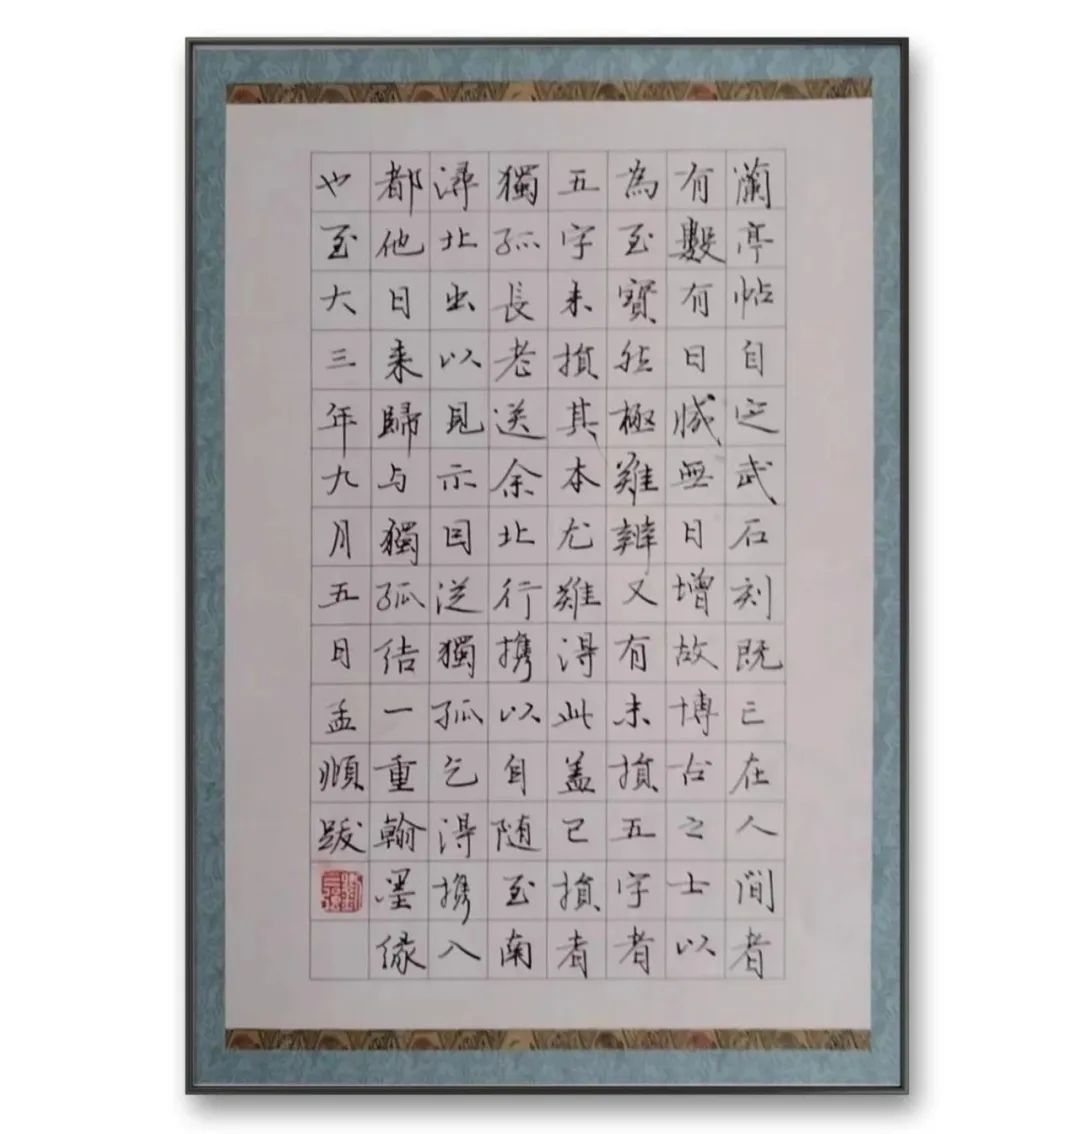 蘭亭帖自定武石刻既亡在人間者
有數有日減無日增故博古之士以
為至寶然極難辨又有未損五字者
五字未損其本尤難得此盖已損者
獨孤長老送余北行携以自随至南
潯北出以見示因從獨孤乞得携入
都他日来歸与獨孤結一重翰墨緣
也至大三年九月五日孟頫跋